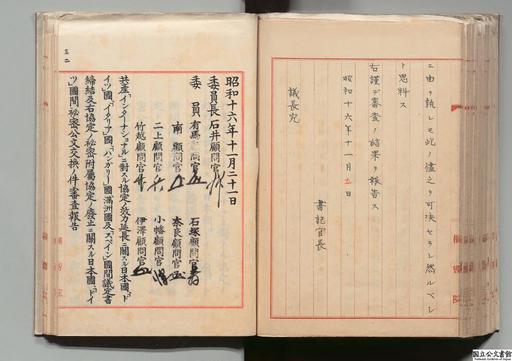 ニ由リ執レモ此ノ儘之ヲ可決セラレ然ルベシ
ト思料ス
右謹デ審査ノ結果ヲ報告ス
昭和十六年十一月 日
書記官長
議長宛
三二
昭和十六年十一月二十一日
委員長 石井顧問官
委員 有馬顧問官 石塚顧問官
南顧問官 奈良顧問官
二上顧問官 小幡顧問官
竹越顧問官 伊澤顧問官
共産「インターナショナル」ニ對スル協定ノ效力延長ニ關スル日本國、「ド
イツ」國、「イタリア」國、「ハンガリー」國、滿洲國及「スペイン」國間議定書
締結及右協定ノ秘密附屬協定ノ廢止ニ關スル日本國、「ドイ
ツ」國間秘密公文交換ノ件審査報告
国立公文書館
National Archives of Japan